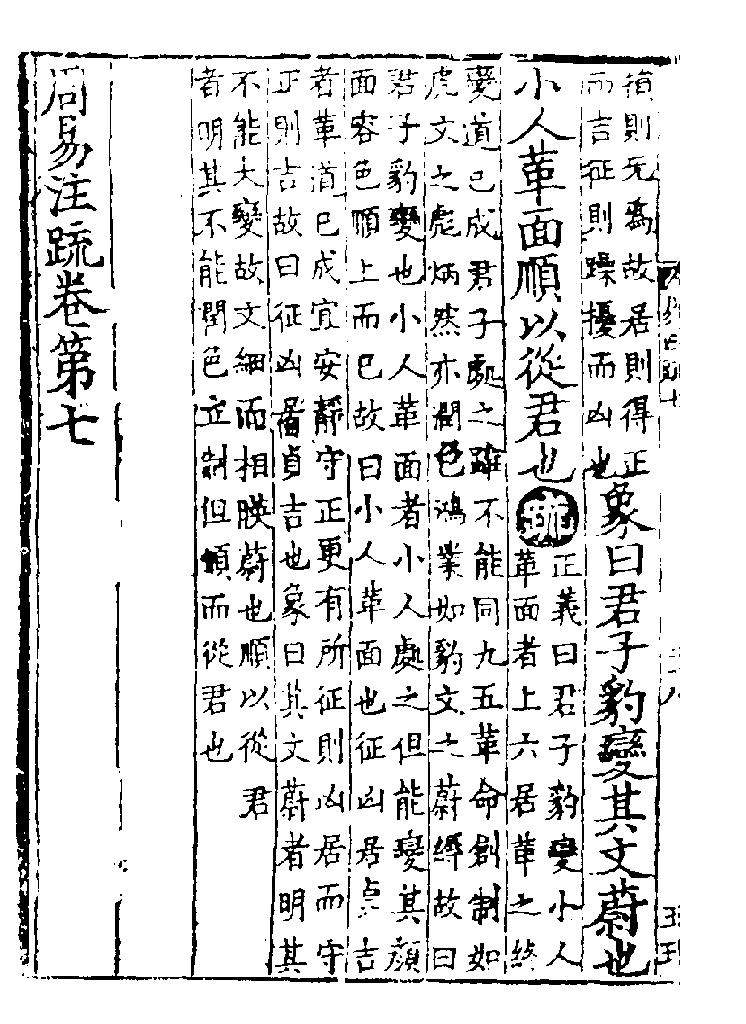 損則无爲故居則得正
而吉征則躁擾而凶也
象曰君子豹變其文蔚也
小人革面順以從君也
疏
正義曰君子豹變小人
革面者上六居革之終
變道已成君子處之雖不能同九五革命創制如
虎文之彪炳然亦潤色鴻業如豹文之蔚縟故曰
君子豹變也小人革面者小人處之但能變其顏
面容色順上而已故曰小人革面也征凶居貞吉
者革道已成宜安靜守正更有所征則凶居而守
正則吉故曰征凶居貞吉也象曰其文蔚者明其
不能大變故文細而相映蔚也順以從君
者明其不能潤色立制但順而從君也
周易注疏卷第七